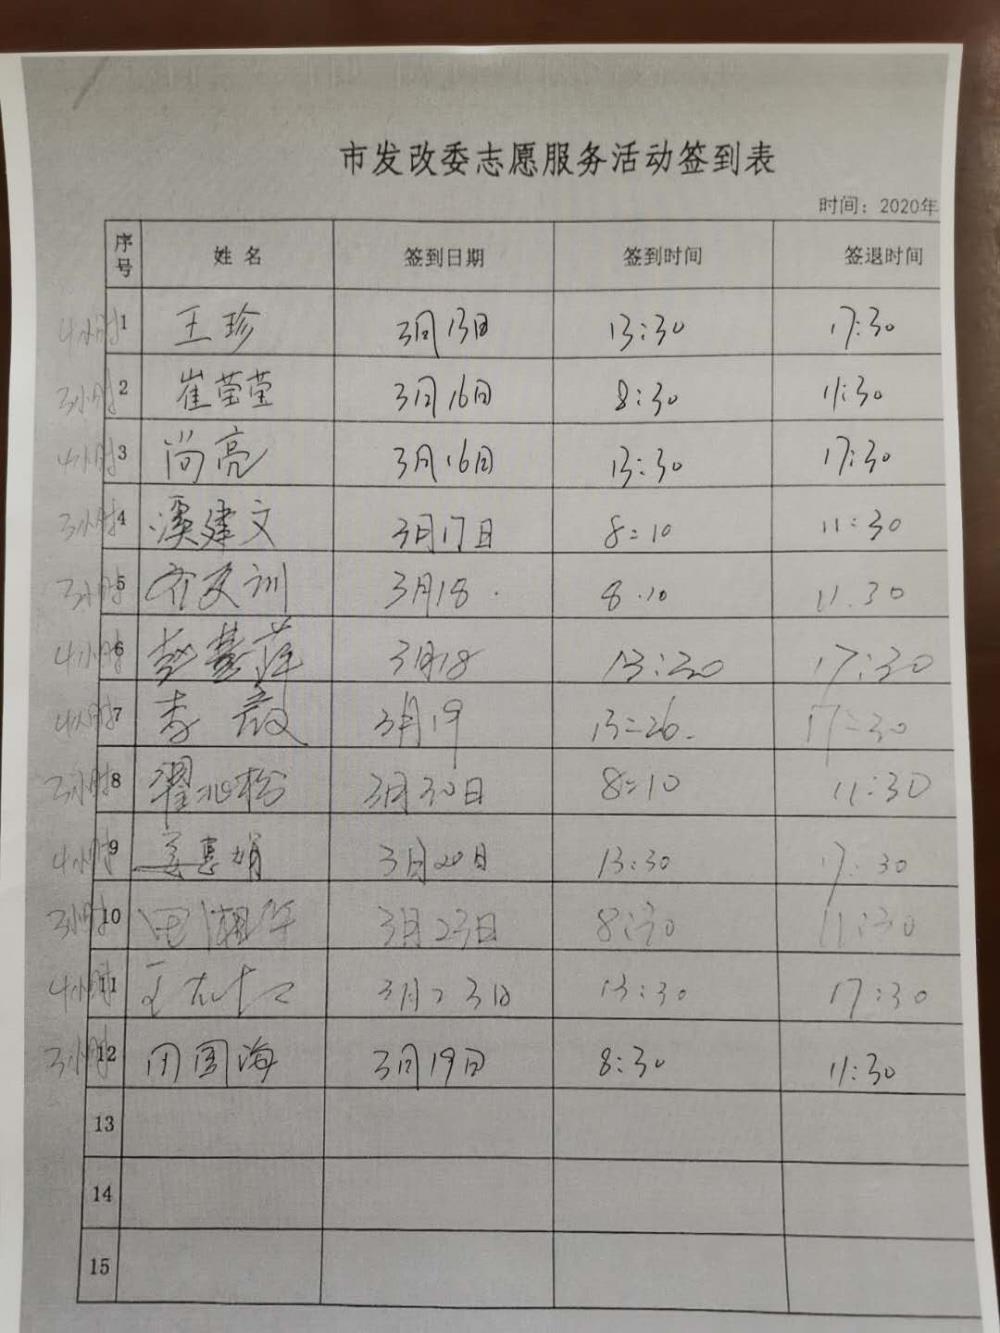 市发改委志愿服务活动签到表
时间：2020年
序号 姓 名 签到日期 签到时间 签退时间
4小时 1 王珍 3月13日 13:30 17:30
3小时 2 崔莹莹 3月16日 8:30 11:30
4小时 3 尚亮 3月16日 13:30 17:30
3小时 4 溪建文 3月17日 8:10 11:30
3小时 5 齐文训 3月18. 8.10 11.30
4小时 6 3月18 13:30 17:30
4小时 7 李 3月19 13:26. 17:30
3小时 8 翟兆松 3月20日 8:10 11:30
4小时 9 姜惠娟 3月20日 13:30 17:30
3小时 10 田湘华 3月23日 8:30 11:30
4小时 11 王 3月23日 13:30 17:30
3小时 12 田国海 3月19日 8:30 11:30
13
14
15